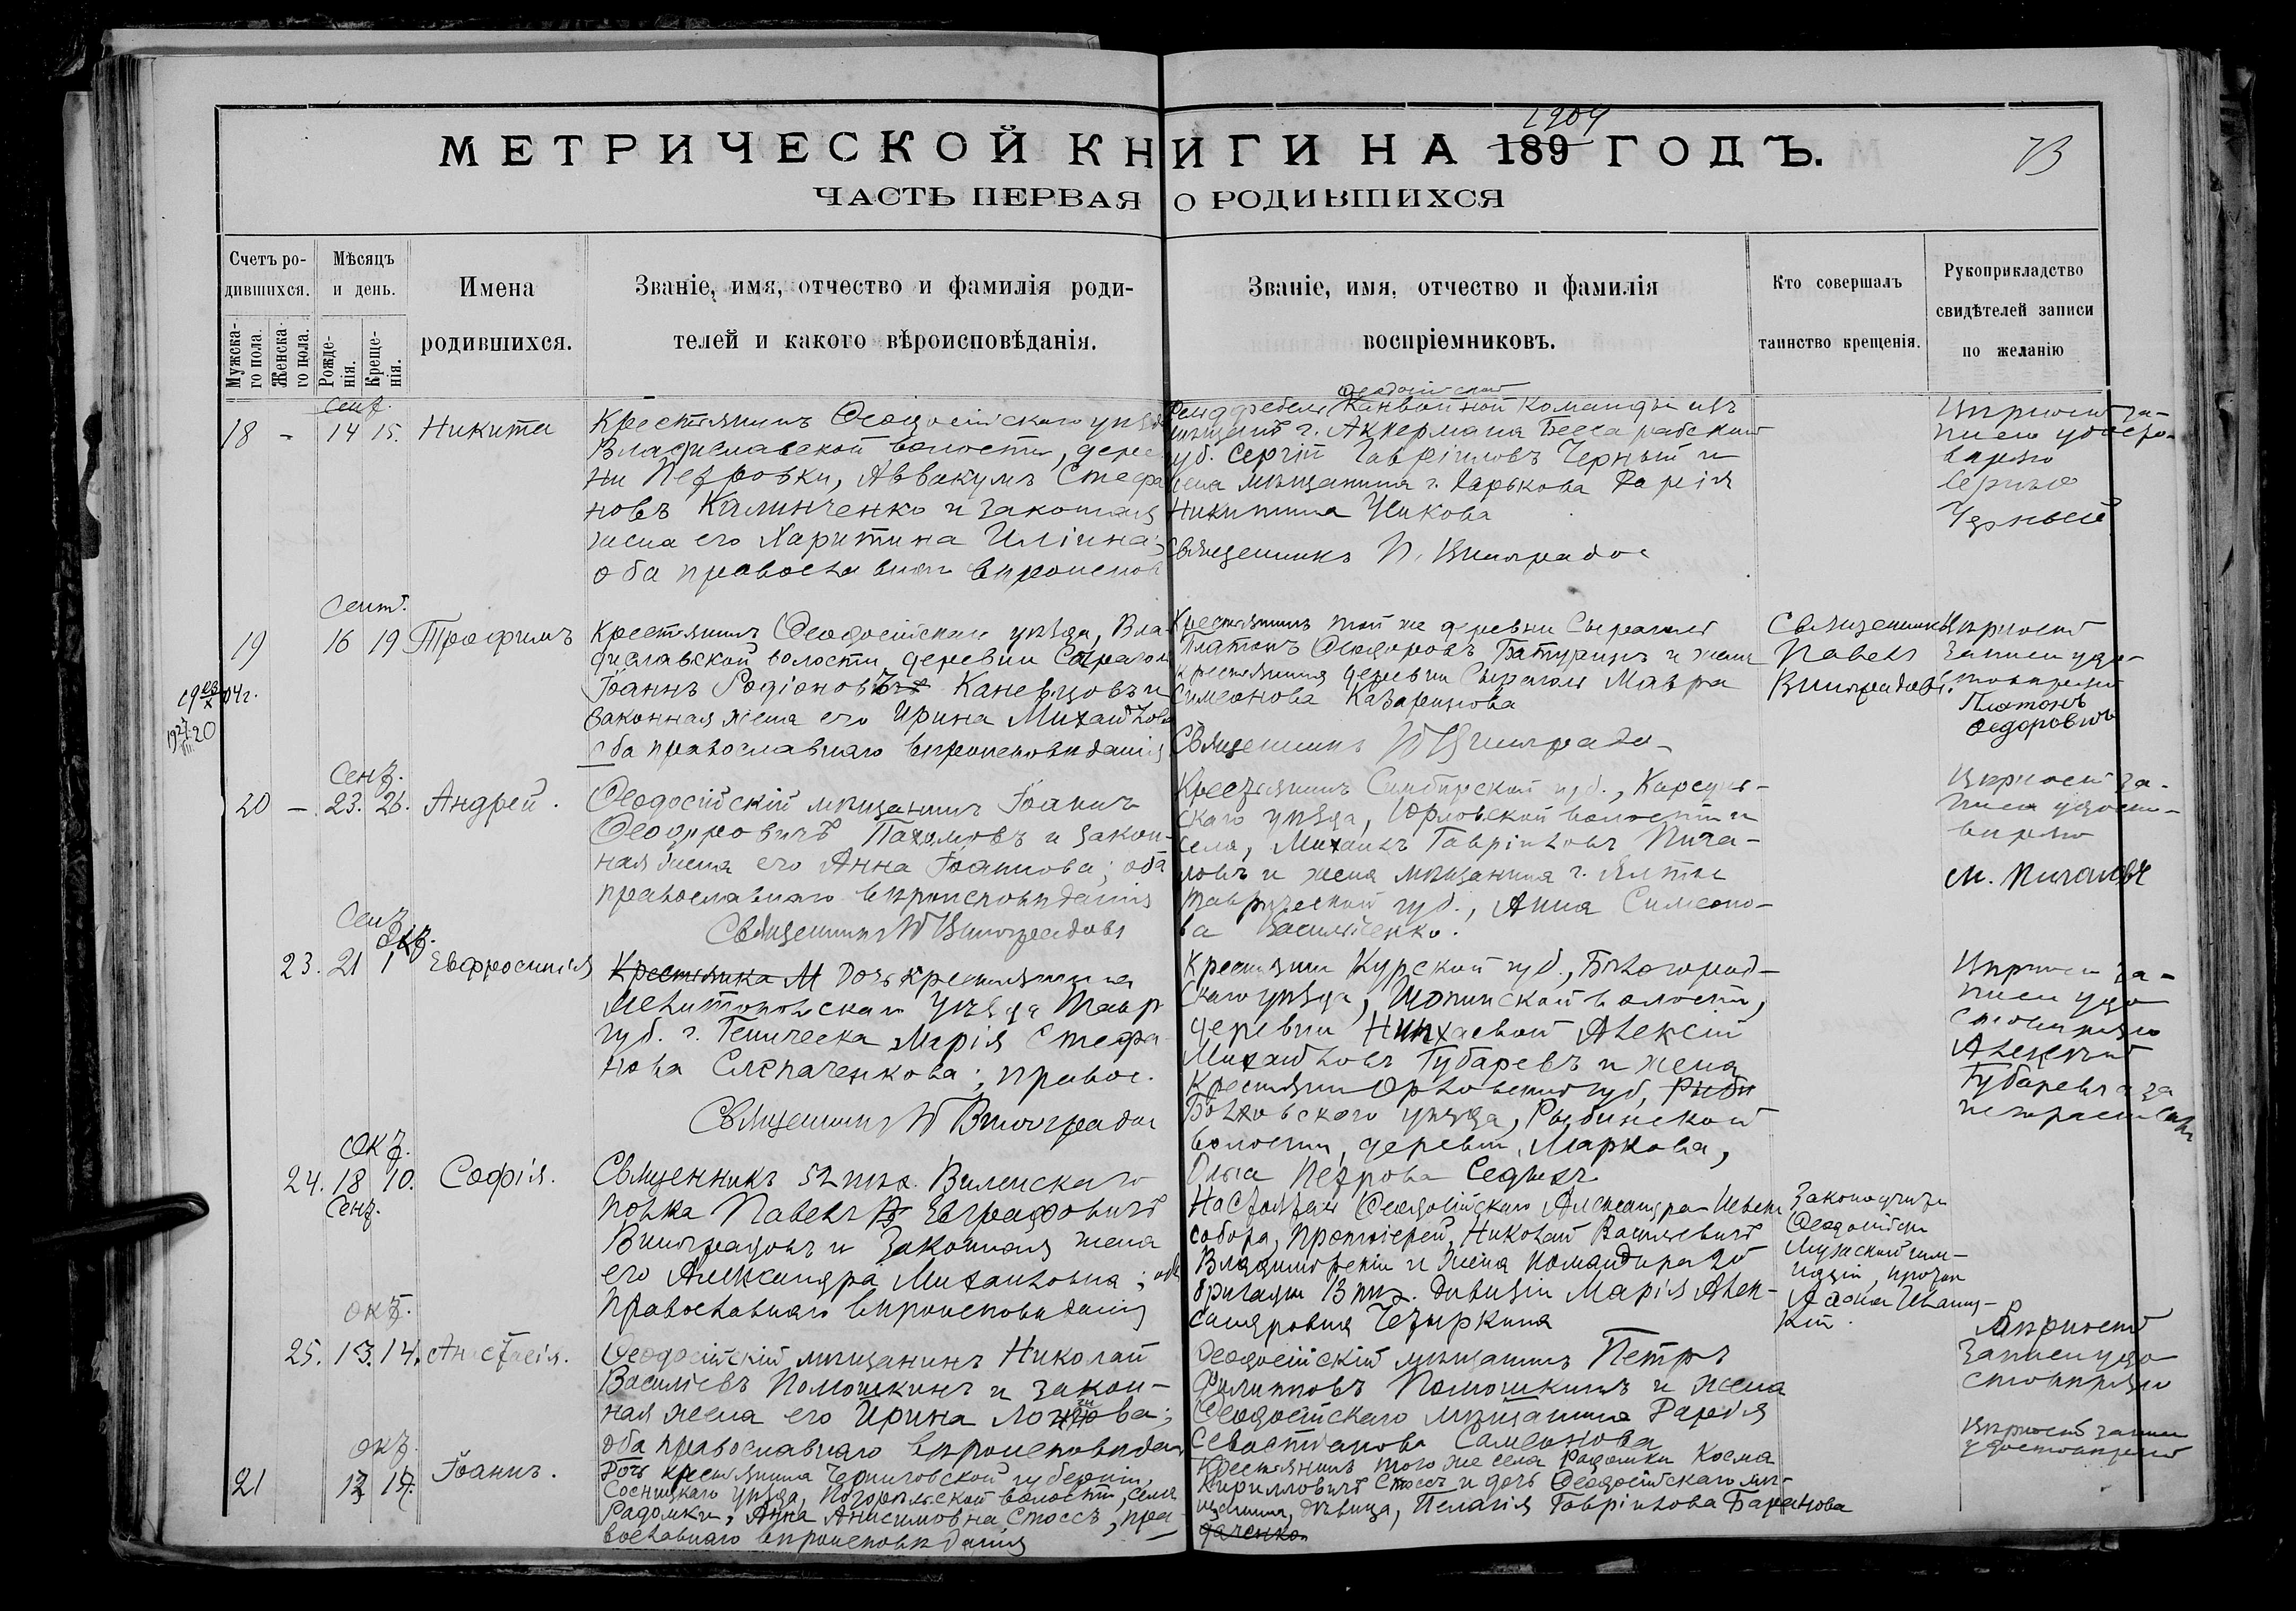 1904
МЕТРИЧЕСКОЙ КНИГИ НА 189 ГОДЪ.
73
ЧАСТЬ ПЕРВАЯ О РОДИВШИХСЯ
Счетъ родившихся.
Мужскаго пола.
Женскаго пола.
Мѣсяцъ и день.
Рожденія.
Крещенія.
Имена родившихся.
Званіе, имя, отчество и фамилія родителей и какого вѣроисповѣданія.
Званіе, имя, отчество и фамилія воспріемниковъ.
Кто совершалъ таинство крещенія.
Рукоприкладство свидѣтелей записи по желанію
Сент.
18 - 14 15. Никита
Крестьянинъ Ѳеодосійскаго уѣзда
Владиславской волости, дерев
ни Петровки, Аввакумъ Стефа
новъ Калинченко и законная
жена его Харитина Иліина;
оба православнаго вѣроиспов
Ѳеодосійской
Фельдфебель Канвойной команды изъ
мѣщанъ г. Аккермана Бессарабской
губ. Сергій Гавріиловъ Черный и
жена мѣщанина г. Харькова Дарія
Никитина
Священникъ П. Виноградов
Вѣрность за-
писи удосто-
вѣряю
Сергѣй
Черный
Сент.
19 16 19 Трофимъ
Крестьянинъ Ѳеодосійскаго уѣзда, Вла-
диславской волости, деревни
Іоаннъ Родіоновъ Каневцовъ и
законная жена его Ирина Михайлова
оба православнаго вѣроисповѣданія
Крестьянинъ той же деревни
Платонъ Ѳеодоровъ Батуринъ и жена
крестьянина деревни Мавра
Симеонова Казаринова
Священникъ П Виноградов
Священникъ
Павелъ
Виноградовъ.
Вѣрность
записи удо-
стовѣряю
Платонъ
Ѳедоровичъ
04 г.
20
Сент.
20 - 23. 26. Андрей.
Ѳеодосійскій мѣщанинъ Іоаннъ
Ѳеодоровичъ Пахомовъ и закон-
ная жена его Анна Іоаннова; оба
православнаго вѣроисповѣданія
Священникъ П Виноградовъ
Крестьянинъ Симбирской губ., Карсун-
скаго уѣзда, Юрловской волости и
села, Михаилъ Гавріиловъ Пича-
ловъ и жена мѣщанина г. Ялты
Таврической губ., Анна Симеоно-
ва Василченко.
Вѣрность за-
писи удосто-
вѣряю
М. Пичаловъ
Сент
Окт.
23. 21 1 Евфросинія
Крестьянка М Дочь крестьянина
Мелитопольскаго уѣзда Тавр
губ. г. Геническа Марія Стефа
нова Слепаченкова; правос.
Священникъ П Виноградов
Крестьянин Курской губ., Бѣлгород-
скаго уѣзда, Шопинской волости,
деревни Алексій
Михайловъ Губаревъ и жена
Крестьянин Орловской губ,
Болховскаго уѣзда, Рыбинской
волости, деревни Маркова,
Ольга Петрова Седыхъ
Вѣрность за-
писи удо
стовѣряю
Алексѣй
Губаревъ а за
неграмотную
Окт.
24. 18 10. Софія.
Сент.
Священникъ 52 пѣх. Виленскаго
полка Павелъ Евграфовичъ
Виноградовъ и законная жена
его Александра Михайловна; оба
православнаго вѣроисповѣданія
Настоятель Ѳеодосійскаго Александро-Невск
собора, протоіерей, Николай Васильевичъ
Владимірскій и жена командира 2й
бригады 13 пѣх. дивизіи Марія Алек-
сандровна Чезыркина
Законоучитель
Ѳеодосійской
Мужской гим-
назіи,
Окт.
25. 13. 14. Анастасія.
Ѳеодосійскій мѣщанинъ Николай
Василіевъ Помошкинъ и закон-
ная жена его Ирина Логгинова;
оба православнаго вѣроисповѣдан
Ѳеодосійскій мѣщанинъ Петръ
Филипповъ Помошкинъ и жена
Ѳеодосійскаго мѣщанина Дарія
Севастіанова Самсонова
Вѣрность
записи удо
стовѣряю
Окт.
21 12 17. Іоаннъ.
Дочь крестьянина Черниговской губерніи,
Сосницкаго уѣзда, Погорѣльской волости, села
Радомки, Анна Анисимовна Стоссъ, пра-
вославнаго вѣроисповѣданія
Крестьянинъ того же села Радомки Косма
Кирилловичъ Стоссъ и дочь Ѳеодосійскаго мѣ-
щанина, дѣвица, Пелагія Гавріилова Баранова
Вѣрность записи
удостовѣряю